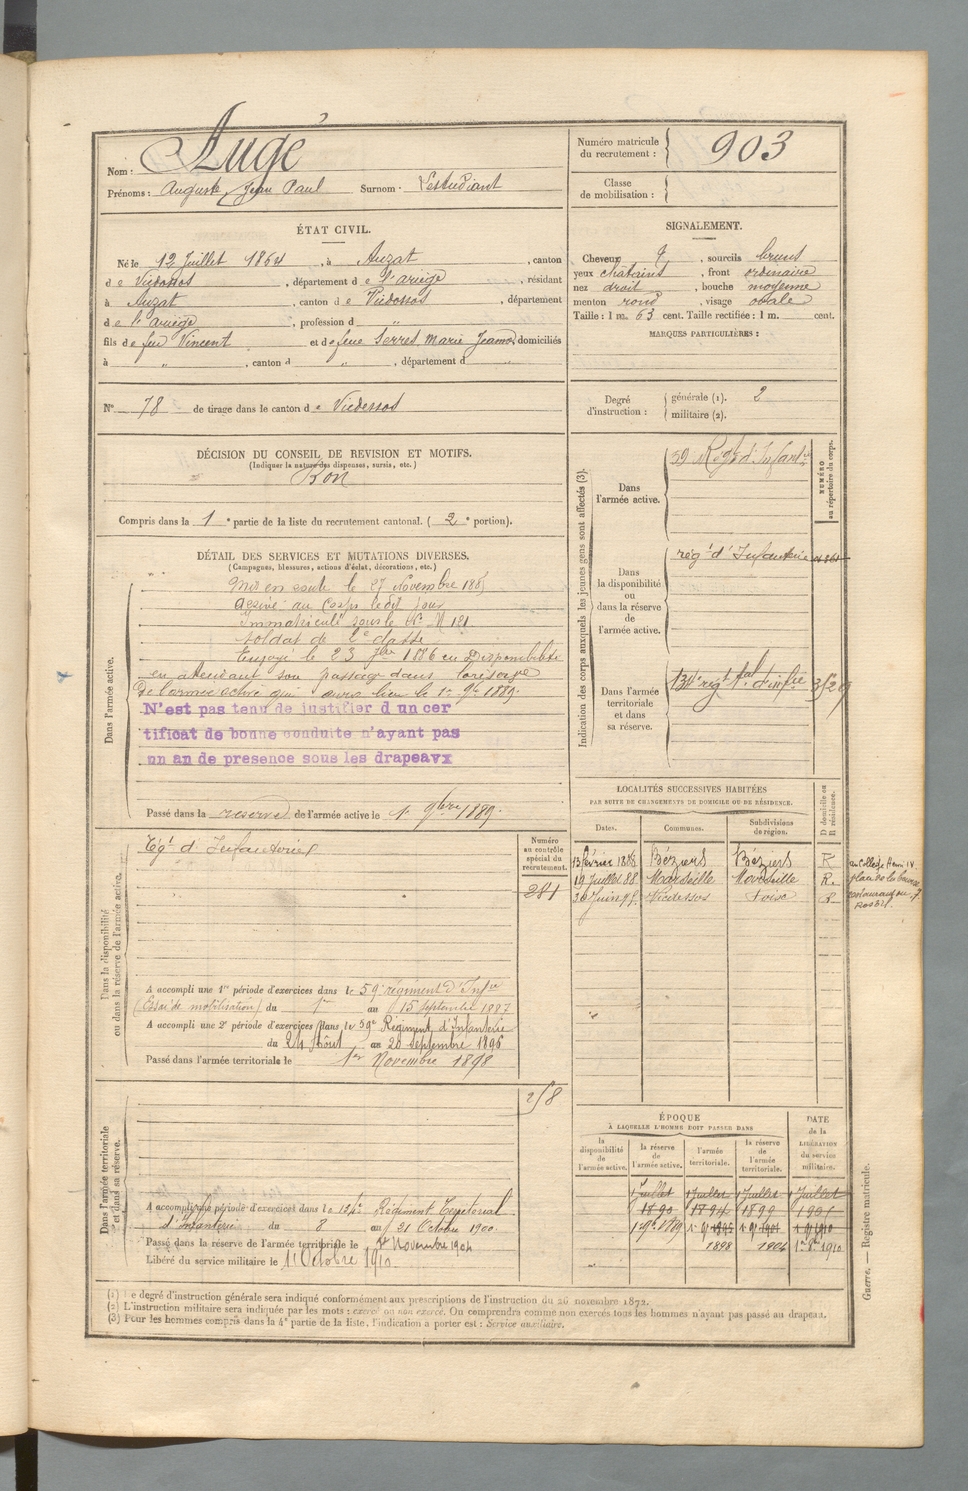 Nom : Augé
Prénoms : Auguste, Jean Paul Surnom : L'estudiant
Numéro matricule du recrutement : 903
Classe de mobilisation :
ÉTAT CIVIL.
Né le 12 Juillet 1864, à Auzat, canton
de Vicdessos, département de l'ariège, résidant
à Auzat, canton de Vicdessos, département
de l'ariège, profession d "
fils de feu Vincent et de feue Serres Marie Jeanne domiciliés
à ", canton d ", département d "
SIGNALEMENT.
Cheveux, sourcils bruns
yeux chatains, front ordinaire
nez droit, bouche moyenne
menton rond, visage ovale
Taille : 1 m. 63 cent. Taille rectifiée : 1 m. cent.
MARQUES PARTICULIÈRES :
N° 78 de tirage dans le canton de Vicdessos
Degré d'instruction : générale (1). 2
militaire (2).
DÉCISION DU CONSEIL DE REVISION ET MOTIFS.
(Indiquer la nature des dispenses, sursis, etc.)
Bon
Compris dans la 1e partie de la liste du recrutement cantonal. (2e portion).
DÉTAIL DES SERVICES ET MUTATIONS DIVERSES.
(Campagnes, blessures, actions d'éclat, décorations, etc.)
Dans l'armée active.
Mis en route le 27 Novembre 1885
Arrivé au Corps ledit jour
Immatriculé sous le N° M 121
Soldat de 2e classe
Envoyé le 23 1886 en Disponibilité
en attendant son passage dans la réserve
de l'armée active qui aura lieu le 1er 9bre 1889.
N'est pas tenu de justifier d un cer
tificat de bonne conduite n'ayant pas
un an de presence sous les drapeavx
Passé dans la reserve de l'armée active le 1er 9bre 1889.
Indication des corps auxquels les jeunes gens sont affectés (3).
NUMÉRO au répertoire du corps.
Dans l'armée active.
59 Régt d'Infantie
Dans la disponibilité ou dans la réserve de l'armée active.
régt d'Infanterie
Dans l'armée territoriale et dans sa réserve.
134e régt tal d'infie
LOCALITÉS SUCCESSIVES HABITÉES
PAR SUITE DE CHANGEMENTS DE DOMICILE OU DE RÉSIDENCE.
Dates. Communes. Subdivisions de région. D domicile ou R résidence.
13 février 1888 Béziers Béziers R au College Henri IV
19 Juillet 88 Marseille Marseille R.
30 Juin 95 Vicdessos Foix R
Dans la disponibilité ou dans la réserve de l'armée active.
Régt d'Infanterie
Numéro au contrôle spécial du recrutement.
281
A accompli une 1re période d'exercices dans le 59e régiment d'Infie
(Essai de mobilisation) du 1er au 15 Septembre 1887
A accompli une 2e période d'exercices dans le 59e Régiment d'Infanterie
du 24 Août au 20 septembre 1896
Passé dans l'armée territoriale le 1er Novembre 1898
Dans l'armée territoriale et dans sa réserve.
258
A accompli une période d'exercices dans le 134e Régiment Territorial
d'Infanterie du 8 au 21 Octobre 1900.
Passé dans la réserve de l'armée territoriale le 1er Novembre 1904
Libéré du service militaire le 1 Octobre 1910.
ÉPOQUE
À LAQUELLE L'HOMME DOIT PASSER DANS
la disponibilité de l'armée active. la réserve de l'armée active. l'armée territoriale. la réserve de l'armée territoriale.
DATE de la LIBÉRATION du service militaire.
1 Juillet 1 Juillet 1 Juillet 1 Juillet
1890 1894 1899
1 9bre 1889
1898 1904 1910
(1) Le degré d'instruction générale sera indiqué conformément aux prescriptions de l'instruction du 26 novembre 1872.
(2) L'instruction militaire sera indiquée par les mots : exercé ou non exercé. On comprendra comme non exercés tous les hommes n'ayant pas passé au drapeau.
(3) Pour les hommes compris dans la 4e partie de la liste, l'indication à porter est : Service auxiliaire.
Guerre. — Registre matricule.